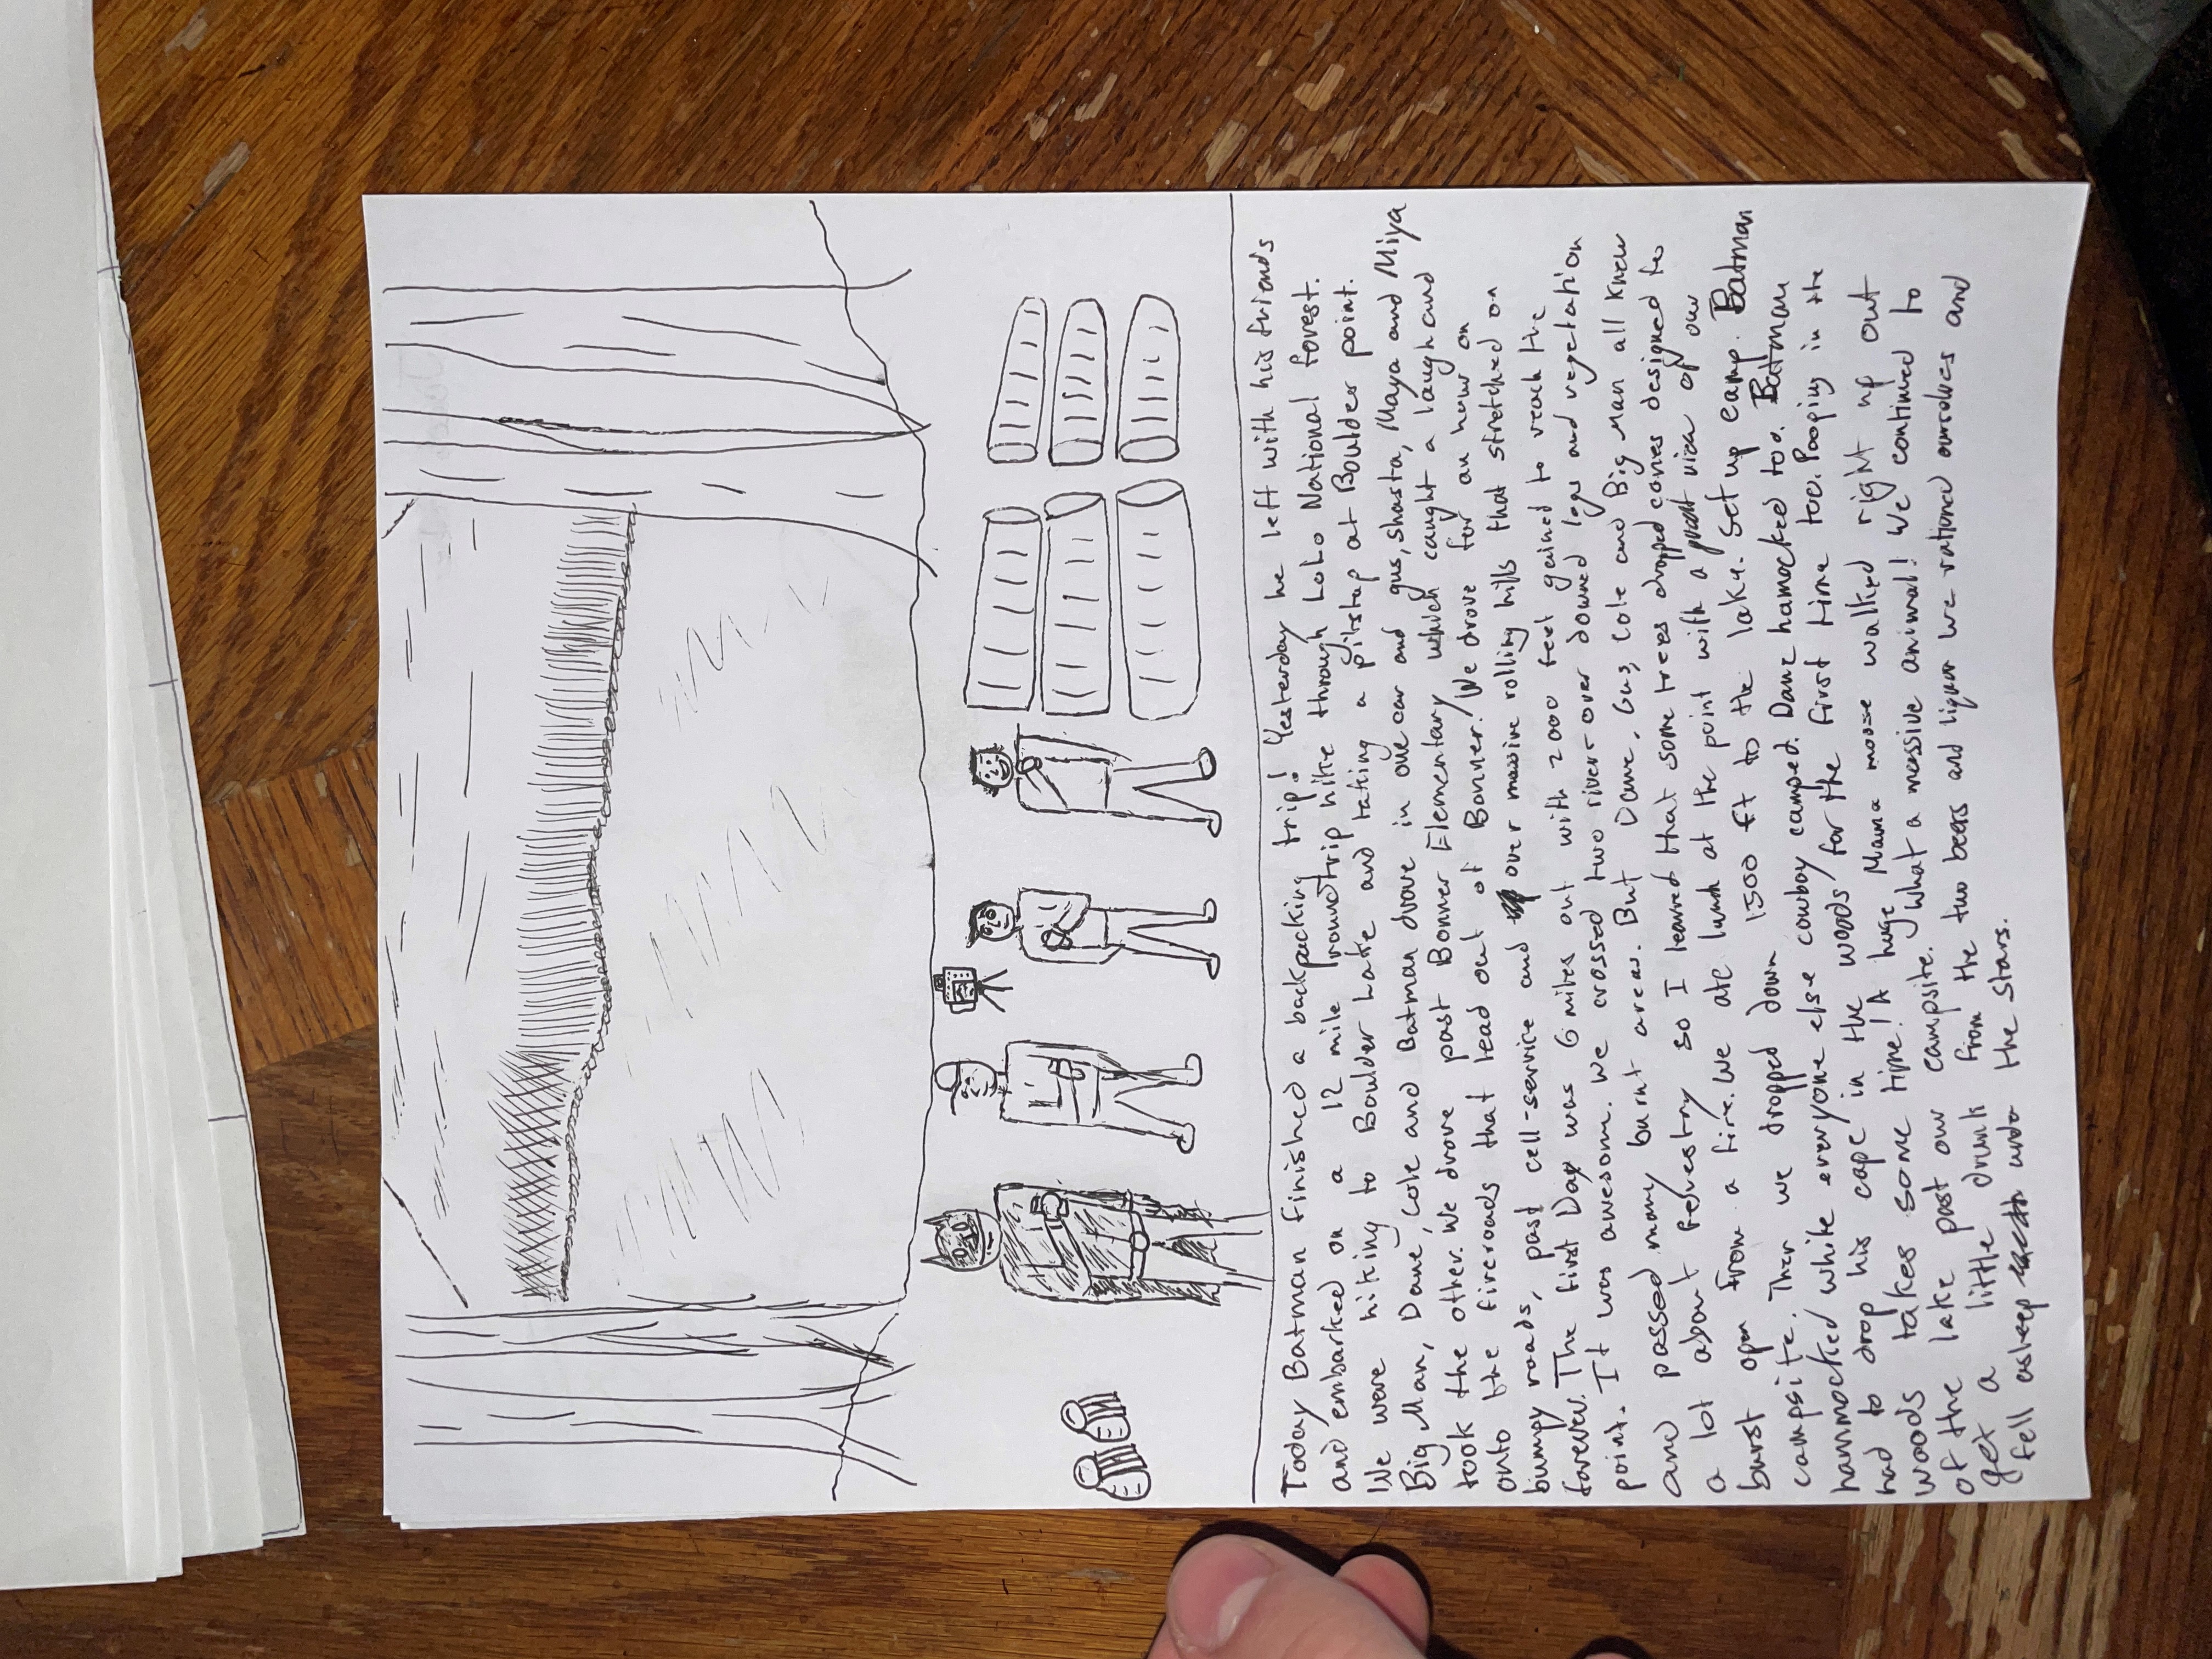 Today Batman finished a backpacking trip! Yesterday he left with his friends
and embarked on a 12 mile roundtrip hike through LoLo National forest.
We were hiking to Boulder Lake and taking a pitstop at Boulder point.
Big Man, Dane, Cole and Batman drove in one car and gus, shasta, Maya and Miya
took the other. We drove past Bonner Elementary which caught a laugh and
onto the fireroads that lead out of Bonner. We drove for an hour on
bumpy roads, past cell-service and over massive rolling hills that stretched on
forever. The first Day was 6 miles out with 2000 feet gained to reach the
point. It was awesome. We crossed two rivers over downed logs and vegetation
and passed many burnt areas. But Dane, Gus, Cole and Big Man all knew
a lot about forestry so I learned that some trees dropped cones designed to
burst open from a fire. We ate lunch at the point with a great view of our
campsite. Then we dropped down 1500 ft to the lake. Set up camp. Batman
hammocked while everyone else cowboy camped. Dane hamocked too. Batman
had to drop his cape in the woods for the first time too. Pooping in the
woods takes some time! A huge Mama moose walked right up out
of the lake past our campsite. What a massive animal! We continued to
get a little drunk from the two beers and liquor we rationed ourselves and
fell asleep under the stars.